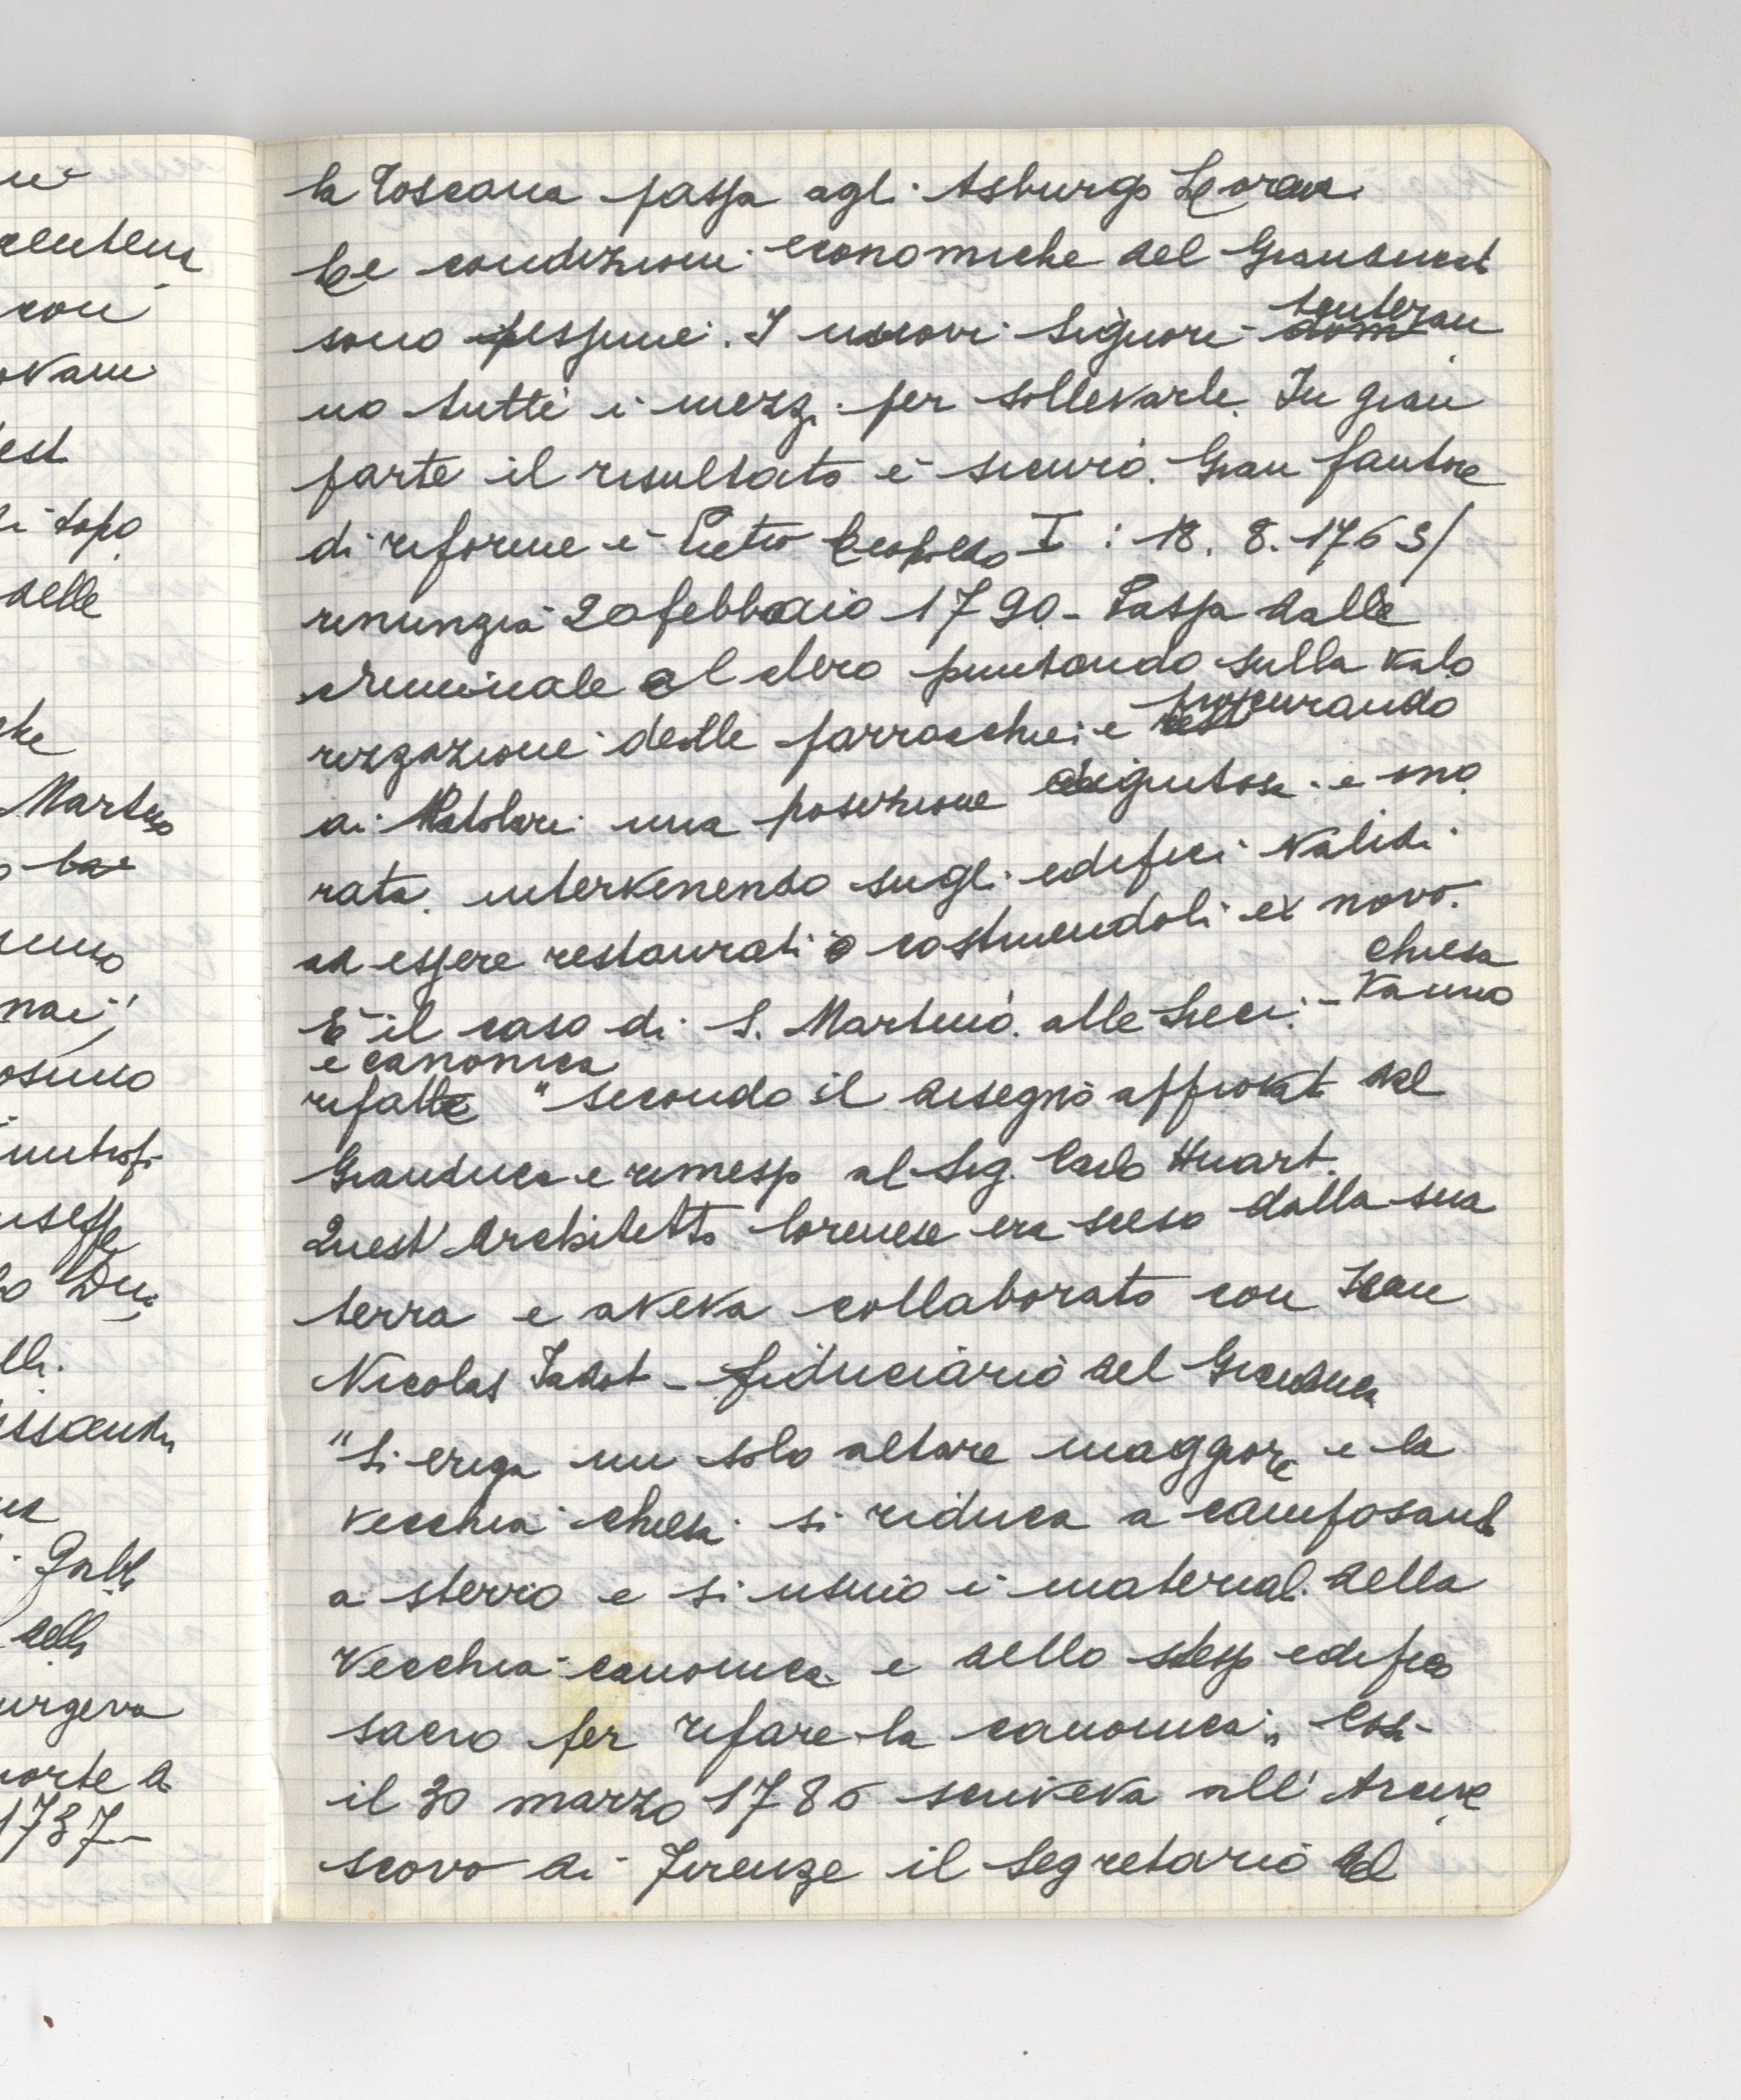 la Toscana passa agli Asburgo Lorena.
Le condizioni economiche del Granducat
sono pessime. I nuovi Signori tenteran
no tutti i mezzi per sollevarle. In gran
parte il risultato è sicuro. Gran fautore
di riforme è Pietro Leopoldo I : 18. 8. 1765/
rinunzia 20 febbraio 1790 - Passa dalle
al clero puntando sulla valo
rizzazione delle parrocchie e procurando
ai una posizione dignitosa e ono
rata. intervenendo sugli edifici validi
ad essere restaurati o costruendoli ex novo.
È il caso di S. Martino alle Sieci - chiesa
e canonica vanno
rifatte "secondo il disegno approvat dal
Granduca e rimesso al Sig. Carlo Huart.
Quest'Architetto lorenese era sceso dalla sua
terra e aveva collaborato con Jean
Nicolas Jadot - fiduciario del Granduca
"Si eriga un solo altare maggiore e la
vecchia chiesa si riduca a camposant
a sterro e si usino i materiali della
vecchia canonica e dello stesso edificio
sacro per rifare la canonica". Così
il 30 marzo 1786 scriveva all'Arcive
scovo di Firenze il Segretario del
cui
est
di topo
delle
che
Martino
nai,
Giuseppe
lli.
della
urgeva
morte a
1787-